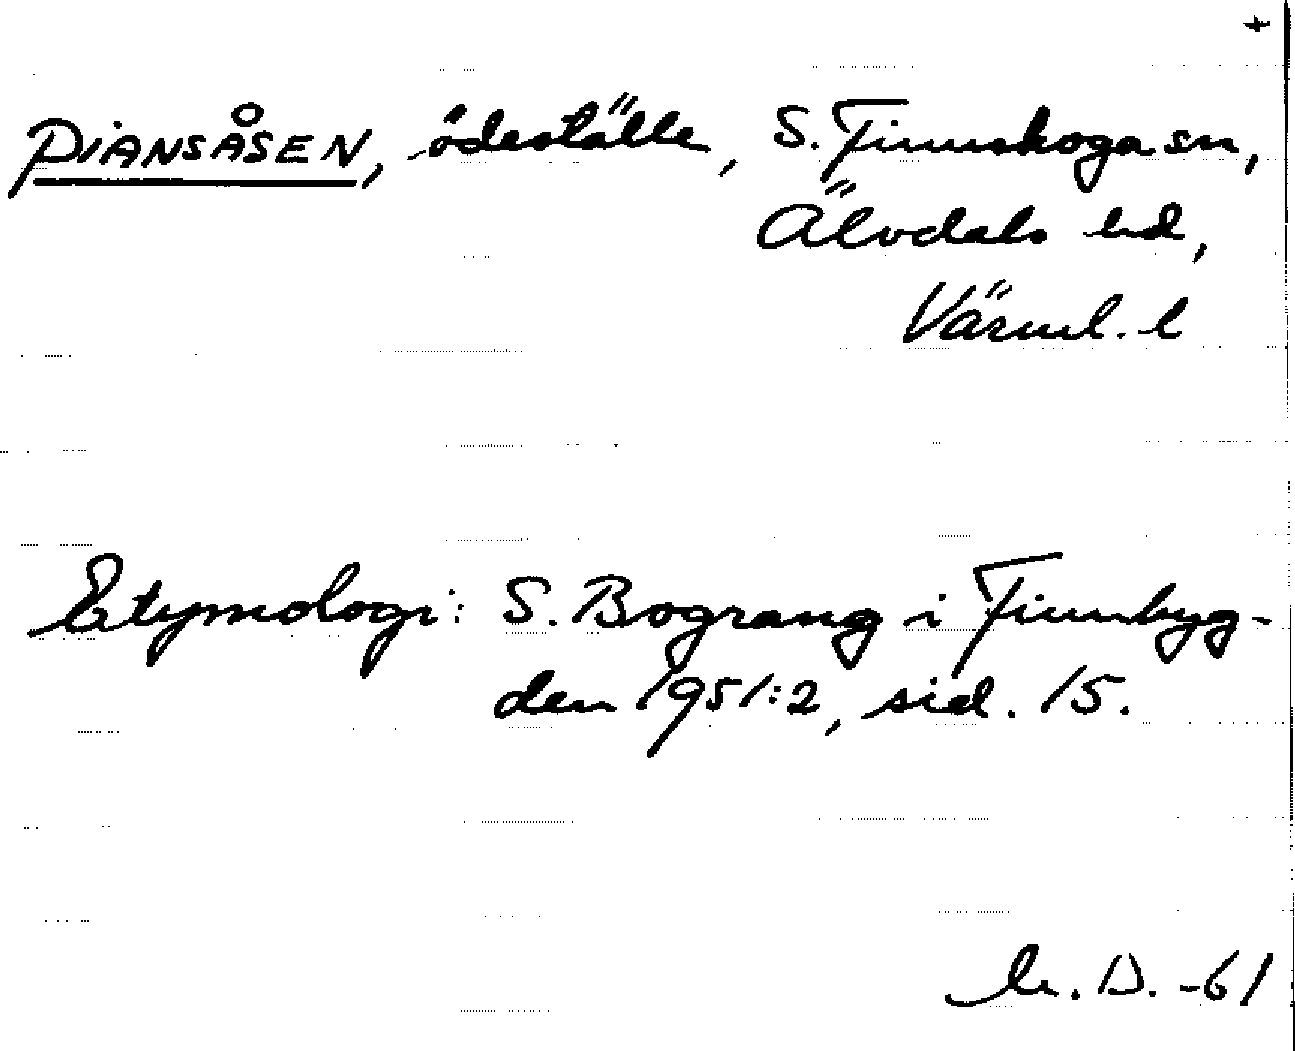 +
PIANSÅSEN, ödeställe, S. Finnskoga sn,
Älvdals hd,
Värml. l
Etymologi: S. Bograng i Finnbyg-
den 1951:2, sid. 15.
D. -61